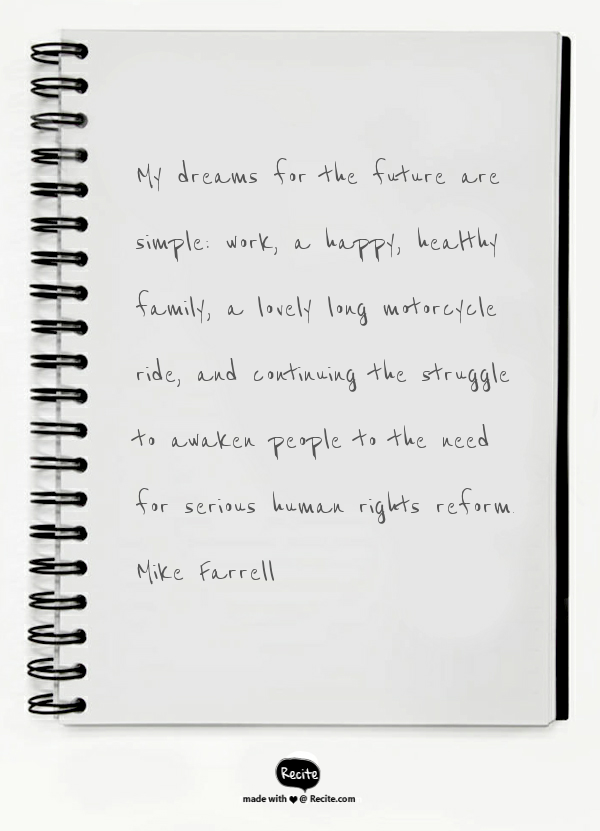 My dreams for the future are
simple: work, a happy, healthy
family, a lovely long motorcycle
ride, and continuing the struggle
to awaken people to the need
for serious human rights reform.
Mike Farrell
Recite
made with ❤ @ Recite.com